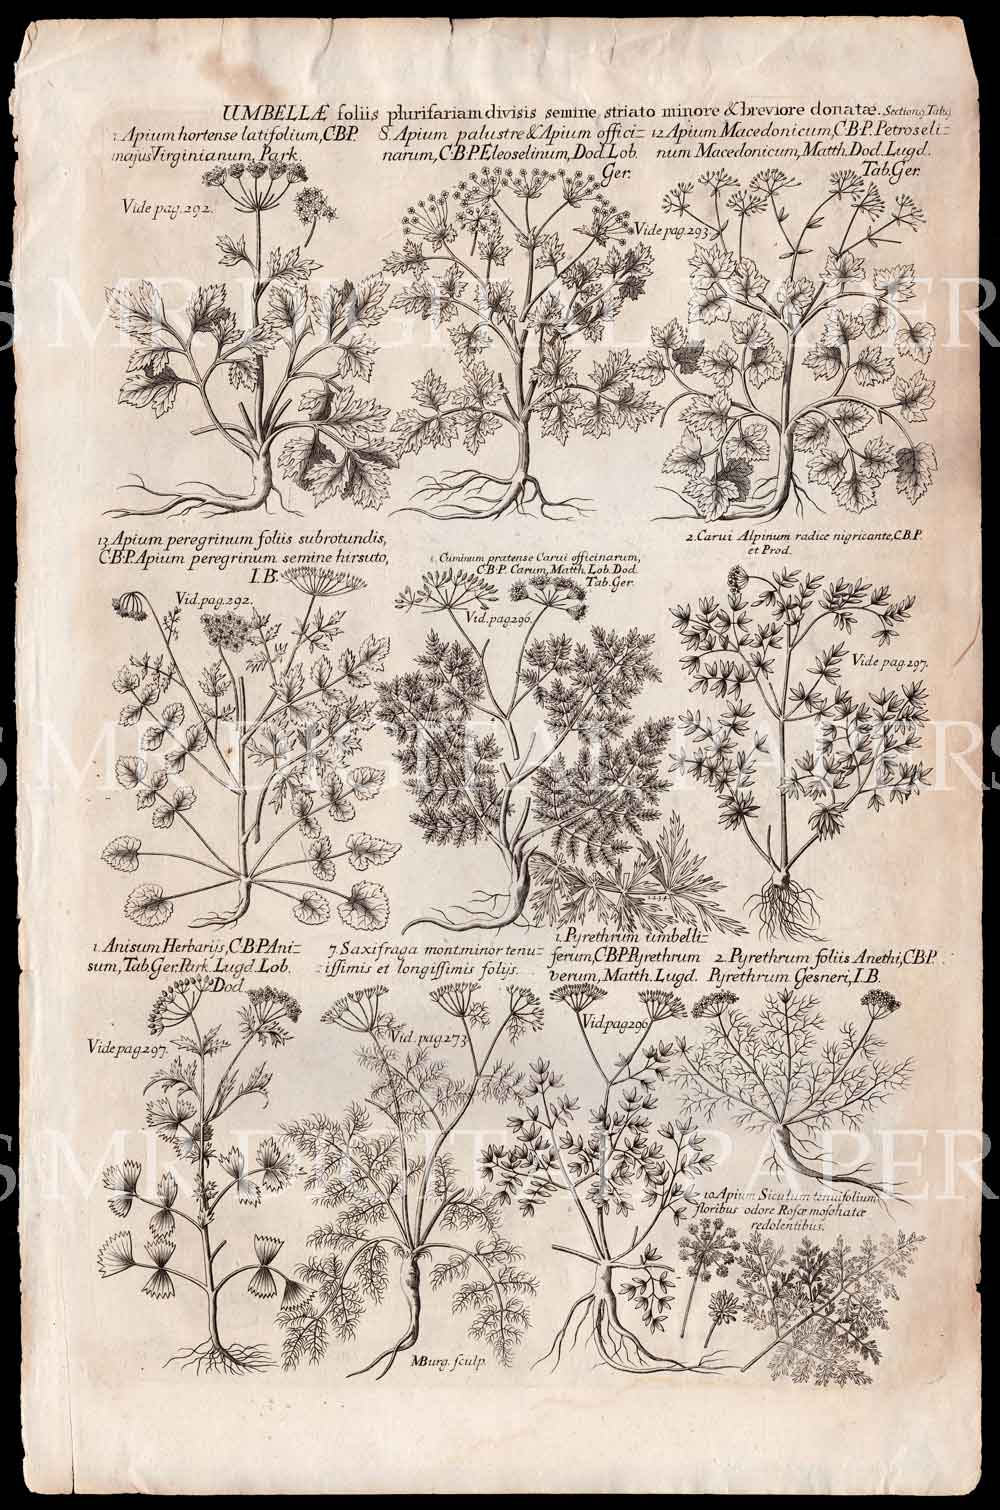 UMBELLÆ foliis plurifariam divisis semine striato minore & breviore donatæ. Section 9. Tab.
Apium hortense latifolium, C.B.P.
majus Virginianum, Park.
Vide pag. 292.
8. Apium palustre & Apium offici=
narum, C.B.P. Eleoselinum, Dod. Lob.
Ger.
12. Apium Macedonicum, C.B.P. Petroseli=
num Macedonicum, Matth. Dod. Lugd.
Tab. Ger.
Vide pag. 293.
13. Apium peregrinum foliis subrotundis,
C.B.P. Apium peregrinum semine hirsuto,
I.B.
Vid. pag. 292.
1. Cuminum pratense Carui officinarum,
C.B.P. Carum, Matth. Lob. Dod.
Tab. Ger.
Vid. pag 296.
2. Carui Alpinum radice nigricante, C.B.P.
et Prod.
Vide pag. 297.
1. Anisum Herbariis, C.B.P. Ani=
sum, Tab. Ger. Park. Lugd. Lob.
Dod.
Vide pag 297.
7. Saxifraga mont. minor tenu=
issimis et longissimis foliis.
Vid. pag 273
1. Pyrethrum umbelli=
ferum, C.B.P. Pyrethrum
verum, Matth. Lugd.
Vid. pag 296
2. Pyrethrum foliis Anethi, C.B.P.
Pyrethrum Gesneri, I.B.
10. Apium Siculum tenuifolium
floribus odore Rosæ moschatæ
redolentibus.
MBurg. sculp.
S MR DIGITAL PAPERS
S MR DIGITAL PAPERS
S MR DIGITAL PAPERS